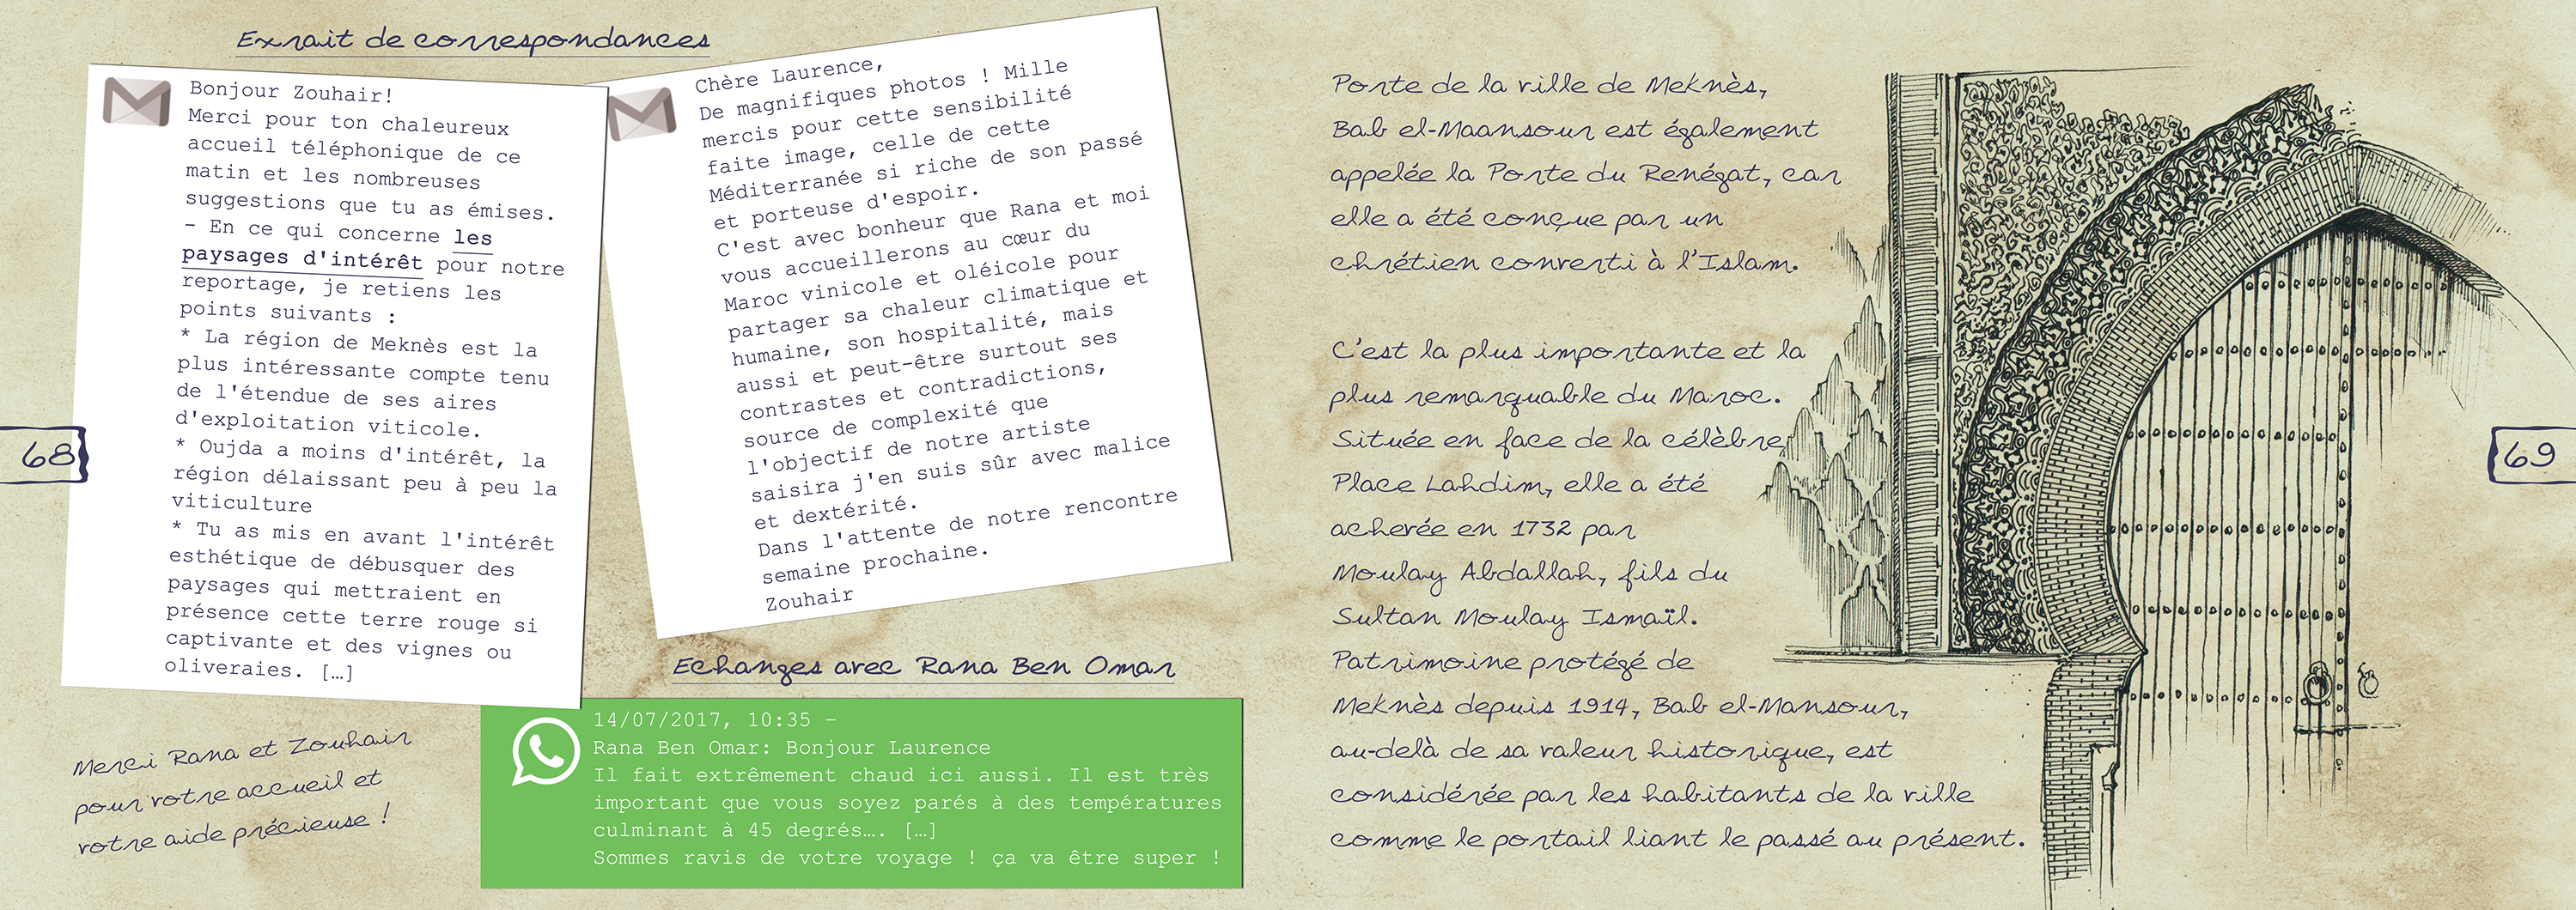 Exrait de correspondances
Bonjour Zouhair!
Merci pour ton chaleureux
accueil téléphonique de ce
matin et les nombreuses
suggestions que tu as émises.
- En ce qui concerne les
paysages d'intérêt pour notre
reportage, je retiens les
points suivants :
* La région de Meknès est la
plus intéressante compte tenu
de l'étendue de ses aires
d'exploitation viticole.
* Oujda a moins d'intérêt, la
région délaissant peu à peu la
viticulture
* Tu as mis en avant l'intérêt
esthétique de débusquer des
paysages qui mettraient en
présence cette terre rouge si
captivante et des vignes ou
oliveraies. […]
Chère Laurence,
De magnifiques photos ! Mille
mercis pour cette sensibilité
faite image, celle de cette
Méditerranée si riche de son passé
et porteuse d'espoir.
C'est avec bonheur que Rana et moi
vous accueillerons au cœur du
Maroc vinicole et oléicole pour
partager sa chaleur climatique et
humaine, son hospitalité, mais
aussi et peut-être surtout ses
contrastes et contradictions,
source de complexité que
l'objectif de notre artiste
saisira j'en suis sûr avec malice
et dextérité.
Dans l'attente de notre rencontre
semaine prochaine.
Zouhair
Merci Rana et Zouhair
pour votre accueil et
votre aide précieuse !
Echanges avec Rana Ben Omar
14/07/2017, 10:35 –
Rana Ben Omar: Bonjour Laurence
Il fait extrêmement chaud ici aussi. Il est très
important que vous soyez parés à des températures
culminant à 45 degrés…. […]
Sommes ravis de votre voyage ! ça va être super !
68
Porte de la ville de Meknès,
Bab el-Maansour est également
appelée la Porte du Renégat, car
elle a été conçue par un
chrétien converti à l'Islam.
C'est la plus importante et la
plus remarquable du Maroc.
Située en face de la célèbre
Place Lahdim, elle a été
achevée en 1732 par
Moulay Abdallah, fils du
Sultan Moulay Ismaïl.
Patrimoine protégé de
Meknès depuis 1914, Bab el-Mansour,
au-delà de sa valeur historique, est
considérée par les habitants de la ville
comme le portail liant le passé au présent.
69